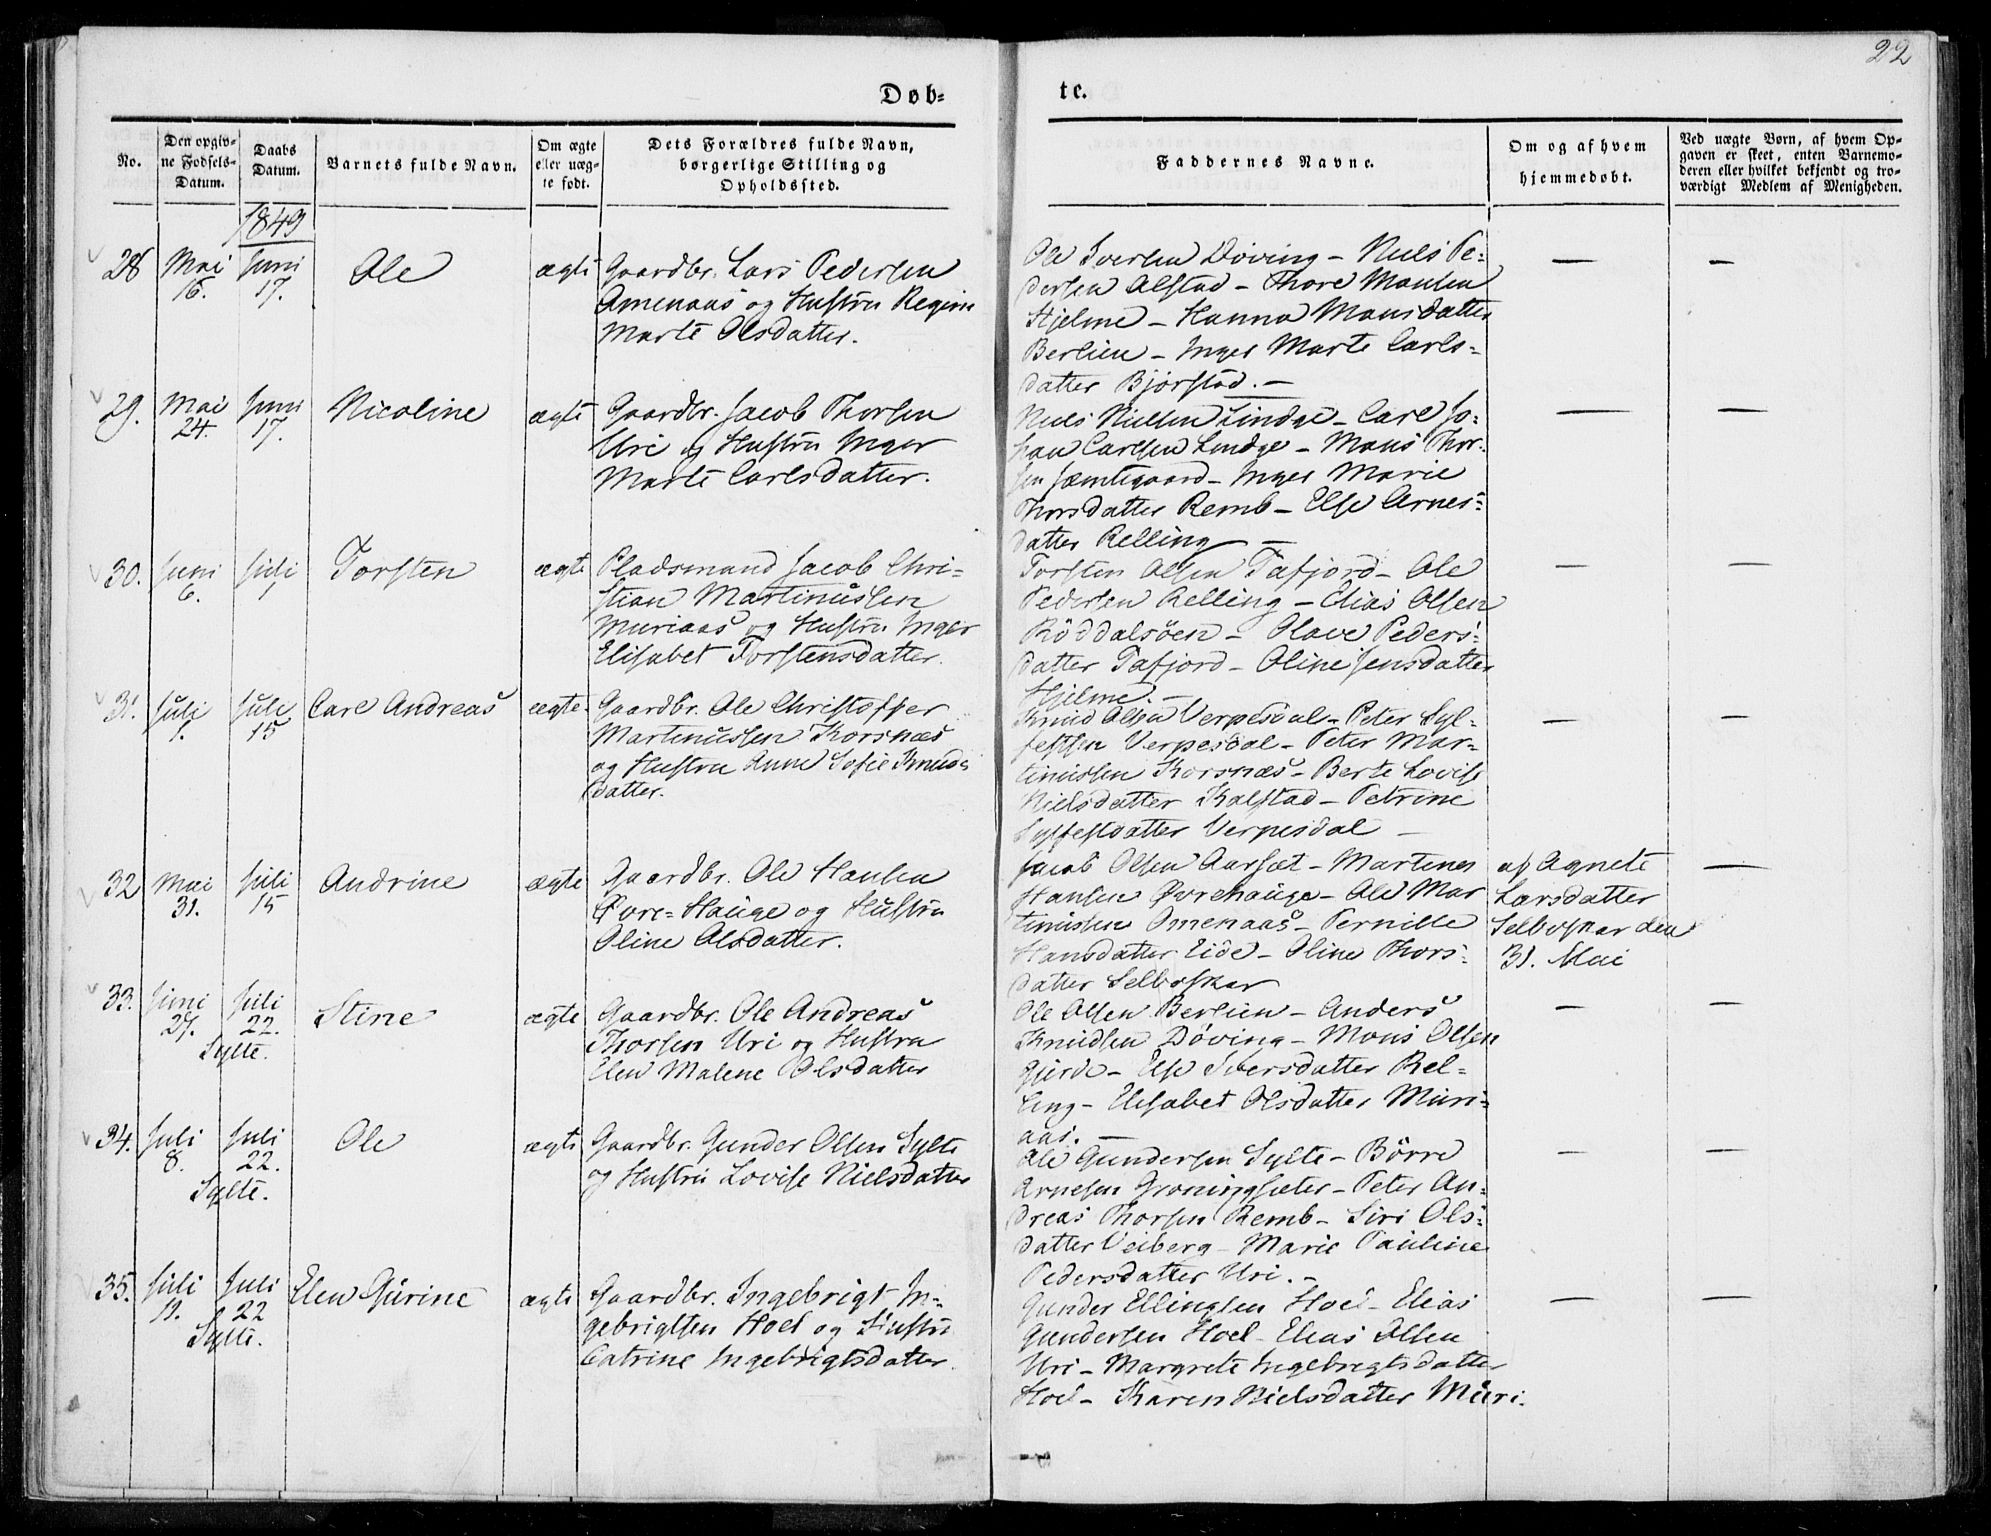 22
Døb-
te.
No.
Den opgiv-
ne Fødsels-
Datum.
Daabs
Datum.
Barnets fulde Navn.
Om ægte
eller uæg-
te født.
Dets Forældres fulde Navn,
borgerlige Stilling og
Opholdssted.
Faddernes Navne.
Om og af hvem
hjemmedøbt.
Ved uægte Børn, af hvem Op-
gaven er skeet, enten Barnemo-
deren eller hvilket bekjendt og tro-
værdigt Medlem af Menigheden.
1849
28 Mai 16. Juni 17. Ole ægte
Gaardbr. Lars Pedersen
Amenaas og Hustru Regine
Marte Olsdatter.
Ole Iversen Döving - Niels Pe-
dersen Alstad - Thore Monsen
Hjelme - Hanna Monsdatter
Berlien - Inger Marte Carls-
datter Bjorstad. -
— —
29. Mai 24. Juni 17. Nicoline ægte
Gaardbr. Jacob Thorsen
Uri og Hustru Inger
Marte Carlsdatter.
Niels Nielsen Lindge - Carl Jo-
han Carlsen Lindge - Mons Thor-
sen Jæmtegaard - Inger Marie
Thorsdatter Remb - Else Arnes-
datter Relling -
— —
30. Juni 6. Juli 1 Torsten ægte
Pladsmand Jacob Chri-
stian Martinussen
Muriaas og Hustru Inger
Elisabet Torstensdatter.
Torsten Olsen Tafjord - Ole
Pedersen Relling - Elias Olsen
Röddalsöen - Olave Peders-
datter Tafjord - Oline Jensdatter
Hjelme. -
— —
31. Juli 1. Juli 15 Carl Andreas ægte
Gaardbr. Ole Christoffer
Martinussen Korsnæs
og Hustru Anne Sofie Knuds
datter.
Knud Olsen Verpesdal - Peter Syl-
festsen Verpesdal - Peter Mar-
tinussen Korsnæs - Berte Lovise
Nielsdatter Kalstad - Petrine
Sylfestdatter Verpesdal -
— —
32 Mai 31. Juli 15 Andrine ægte
Gaardbr. Ole Hansen
Øvre-Hauge og Hustru
Oline Olsdatter.
Jacob Olsen Aarset - Martines
Hansen Øvrehauge - Ole Mar
tinussen Omenaas - Pernille
Hansdatter Eide - Oline Thors-
datter Selboskar
af Agnete
Larsdatter
Selboskar den
31. Mai
—
33. Juni 27. Juli 22. Stine ægte
Sylte.
Gaardbr. Ole Andreas
Thorsen Uri og Hustru
Elen Malene Olsdatter
Ole Olsen Berlien - Anders
Knudsen Döving - Mons Olsen
Gjerde - Else Iversdatter Rel-
ling - Elisabet Olsdatter Muri-
aas. -
— —
34. Juli 8. Juli 22. Ole ægte
Sylte.
Gaardbr. Gunder Olsen Sylte
og Hustru Lovise Nielsdatter
Ole Gundersen Sylte - Börre
Arnesen Groningsæter - Peter An-
dreas Thorsen Remb - Siri Ols-
datter Veiberg - Marie Pauline
Pedersdatter Uri. -
— —
35. Juli 11. Juli 22 Elen Gurine ægte
Sylte.
Gaardbr. Ingebrigt In-
gebrigtsen Hoel og Hustru
Catrine Ingebrigtsdatter.
Gunder Ellingsen Hoel - Elias
Gundersen Hoel - Elias Olsen
Uri - Margrete Ingebrigtsdatter
Hoel - Karen Nielsdatter Muri.
— —